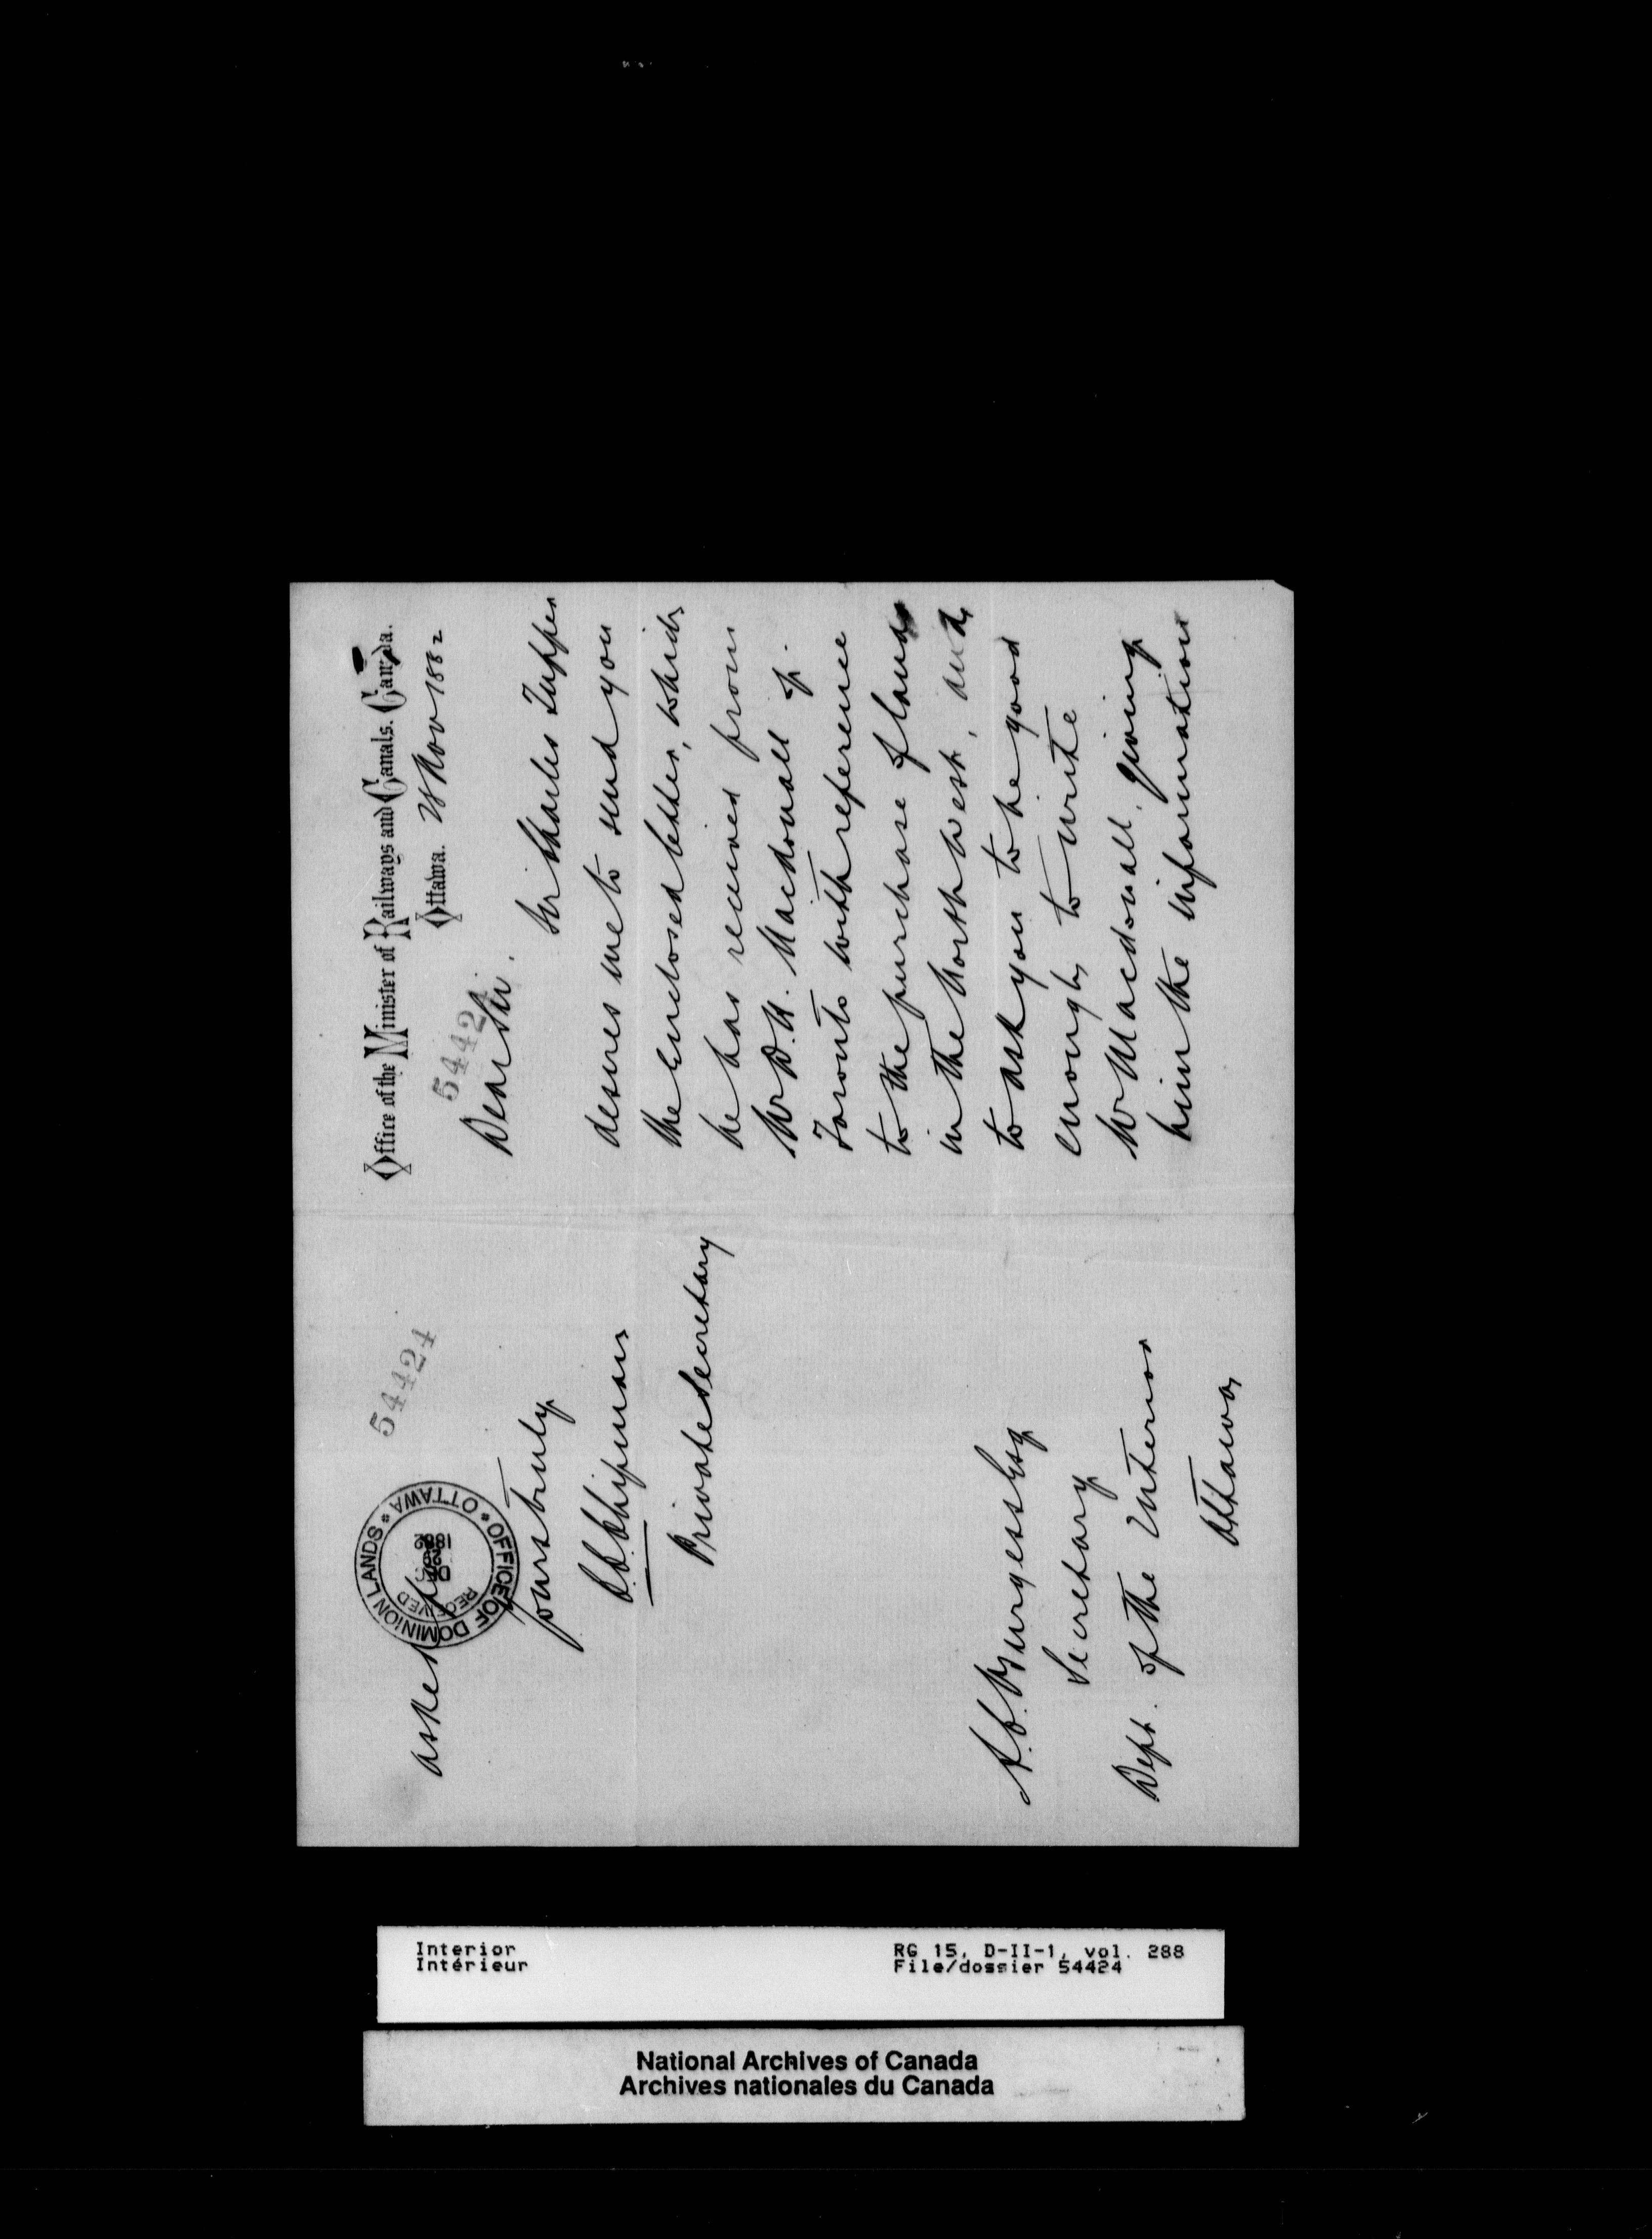 Office of the Minister of Railways and Canals. Canada.
Ottawa. Nov 1882
54424
Dear Sir.
Sir Charles Tupper
desires me to send you
the enclosed letter, which
he has received from
Mr D. H. Macdonall of
Toronto with reference
to the purchase of land
in the North West, and
to ask you to be good
enough to write
Mr Macdonall, giving
him the information
54424
asked for
OFFICE OF DOMINION LANDS * OTTAWA *
RECEIVED
1882
Yours truly
Private Secretary
A. Burgess Esq
Secretary
Dept. of the Interior
Ottawa
Interior
Intérieur
RG 15, D-II-1, vol. 288
File/dossier 54424
National Archives of Canada
Archives nationales du Canada